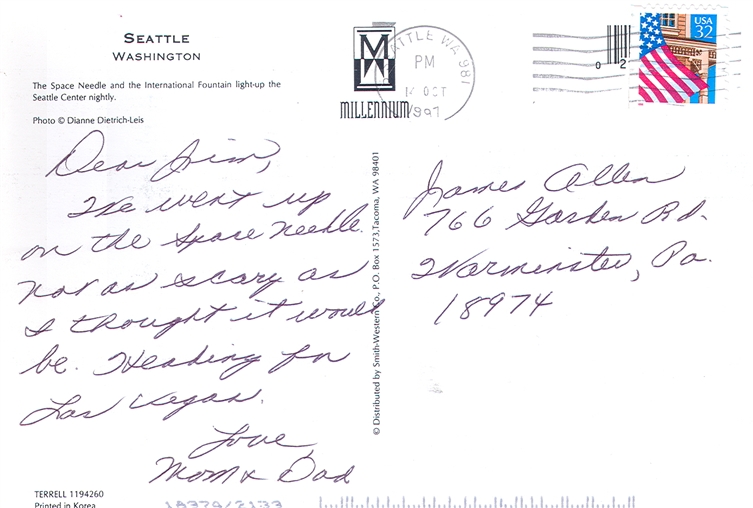 SEATTLE
WASHINGTON
The Space Needle and the International Fountain light-up the
Seattle Center nightly.
Photo © Dianne Dietrich-Leis
M
MILLENNIUM
SEATTLE WA 981
PM
14 OCT
1997
0 2
USA
32
Dear Jim,
We went up
on the Space Needle.
not as scary as
I thought it would
be. Heading for
Las Vegas.
Love,
Mom & Dad
© Distributed by Smith-Western Co., P.O. Box 1573, Tacoma, WA 98401
James Allen
766 Garden Rd.
Warminster, Pa.
18974
TERRELL 1194260
Printed in Korea
18974/2133